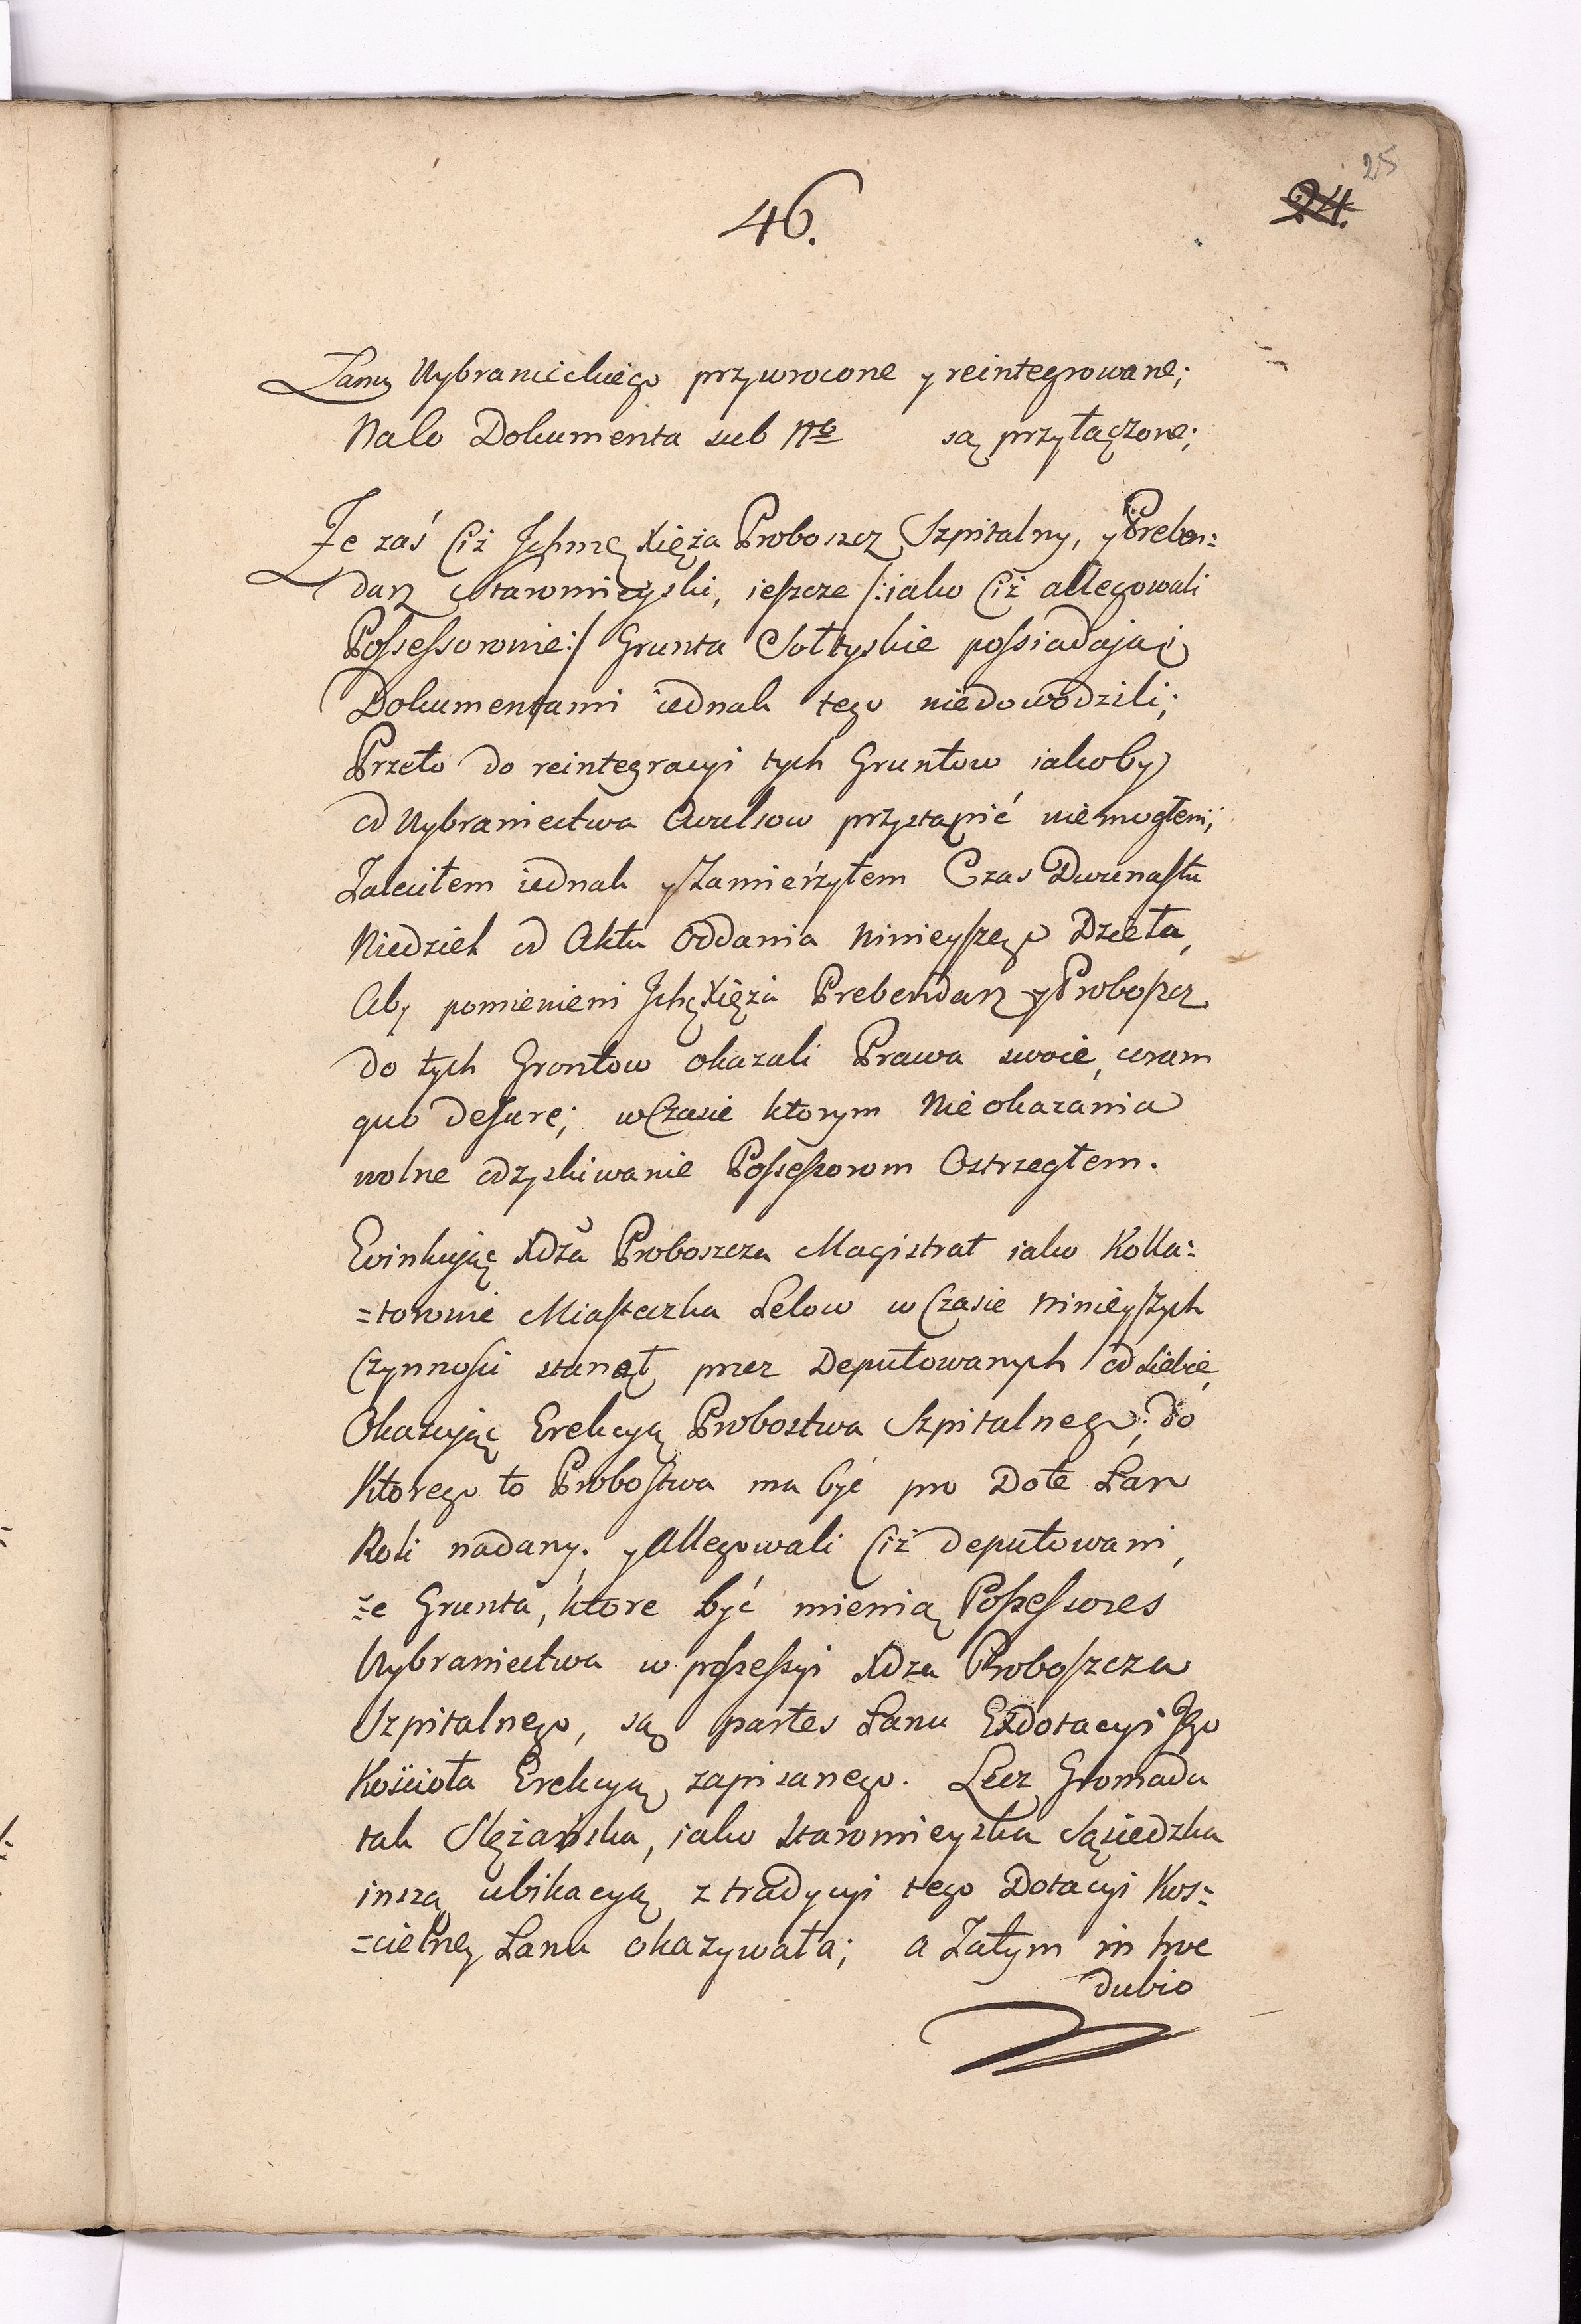 46.
25
24.
Łanu Wybranieckiego przywrocone y reintegrowane;
Na co Dokumenta sub Nro są przyłączone;
Ze zaś Ciż Ichmę Xięża Proboszcz Szpitalny, y Preben:
darz Staromieyski, ieszcze /:iako Ciż allegowali
Possessorowie:/ Grunta Sołtyskie possiadaią
Dokumentami iednak tego niedowodzili;
Przeto do reintegracyi tych Gruntow iakoby
od Wybraniectwa Awulsow przystąpić niemogłem;
Zaleciłem iednak y Zamierzyłem Czas Dwunastu
Niedziel od Aktu Oddania Ninieyszego Dzieła,
Aby pomienieni Ichę Xięża Prebendarz y Proboszcz
do tych Grontow okazali Prawa swoie, coram
quo de Jure; w Czasie ktorym Nie okazania
wolne odzyskiwanie Possessorom Ostrzegłem.
Ewinkuiąc Xdza Proboszcza Magistrat iako Kolla:
=torowie Miasteczka Lelow w Czasie Ninieyszych
Czynności stanął przez Deputowanych od siebie,
Okazuiąc Erekcyą Probostwa Szpitalnego, do
Ktorego to Probostwa ma być pro Dote Łan
Roli nadany. y Allegowali Ciż deputowani,
że Grunta, ktore być mienią Possessores
Wybraniectwa w possessyi Xdza Proboszcza
Szpitalnego, są partes Łanu Exdotacyi Jgo
Kościoła Erekcyą zapisanego. Lecz Gromada
tak Slężańska, iako Staromieyska Sąsiedzka
inszą ubikacyą z tradycyi tego Dotacyi Kos:
=cielney Łanu okazywała; a Zatym in hoc
dubio